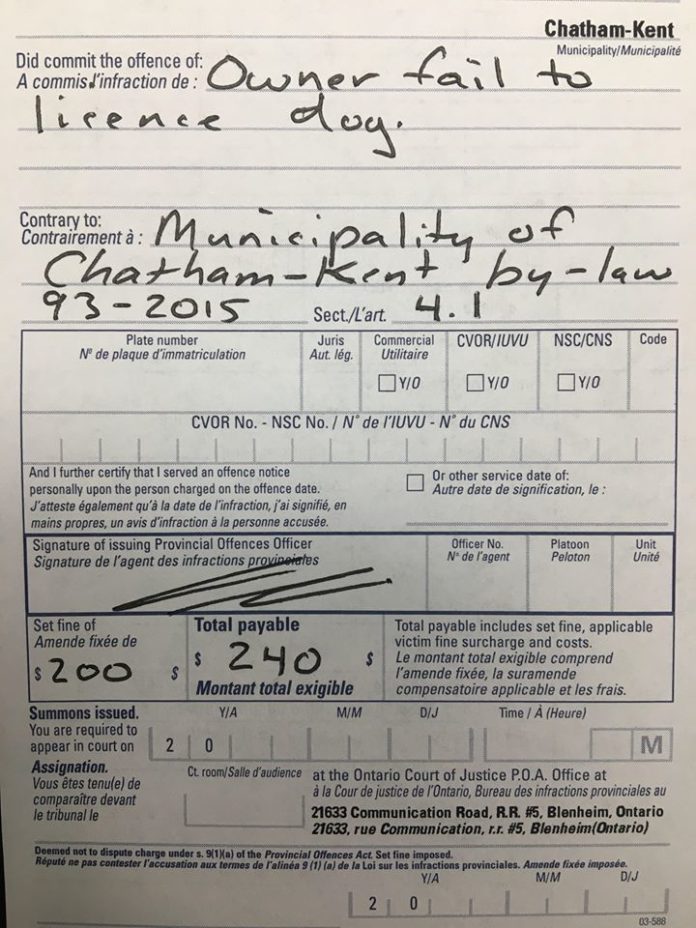 Chatham-Kent
Municipality/Municipalité
Did commit the offence of:
A commis l'infraction de : Owner fail to
licence dog.
Contrary to:
Contrairement à : Municipality of
Chatham-Kent by-law
93-2015 Sect./L'art. 4.1
Plate number Juris Commercial CVOR/IUVU NSC/CNS Code
N° de plaque d'immatriculation Aut. lég. Utilitaire
Y/O Y/O Y/O
CVOR No. - NSC No. / N° de l'IUVU - N° du CNS
And I further certify that I served an offence notice
personally upon the person charged on the offence date.
J'atteste également qu'à la date de l'infraction, j'ai signifié, en
mains propres, un avis d'infraction à la personne accusée.
Or other service date of:
Autre date de signification, le :
Signature of issuing Provincial Offences Officer Officer No. Platoon Unit
Signature de l'agent des infractions provinciales N° de l'agent Peloton Unité
Set fine of
Amende fixée de
$ 200 $
Total payable
$ 240 $
Montant total exigible
Total payable includes set fine, applicable
victim fine surcharge and costs.
Le montant total exigible comprend
l'amende fixée, la suramende
compensatoire applicable et les frais.
Summons issued. Y/A M/M D/J Time / À (Heure)
You are required to
appear in court on 2 0 M
Assignation.
Vous êtes tenu(e) de
comparaître devant
le tribunal le
Ct. room/Salle d'audience
at the Ontario Court of Justice P.O.A. Office at
à la Cour de justice de l'Ontario, Bureau des infractions provinciales au
21633 Communication Road, R.R. #5, Blenheim, Ontario
21633, rue Communication, r.r. #5, Blenheim(Ontario)
Deemed not to dispute charge under s. 9(1)(a) of the Provincial Offences Act. Set fine imposed.
Réputé ne pas contester l'accusation aux termes de l'alinéa 9 (1) (a) de la Loi sur les infractions provinciales. Amende fixée imposée.
Y/A M/M D/J
2 0
03-588